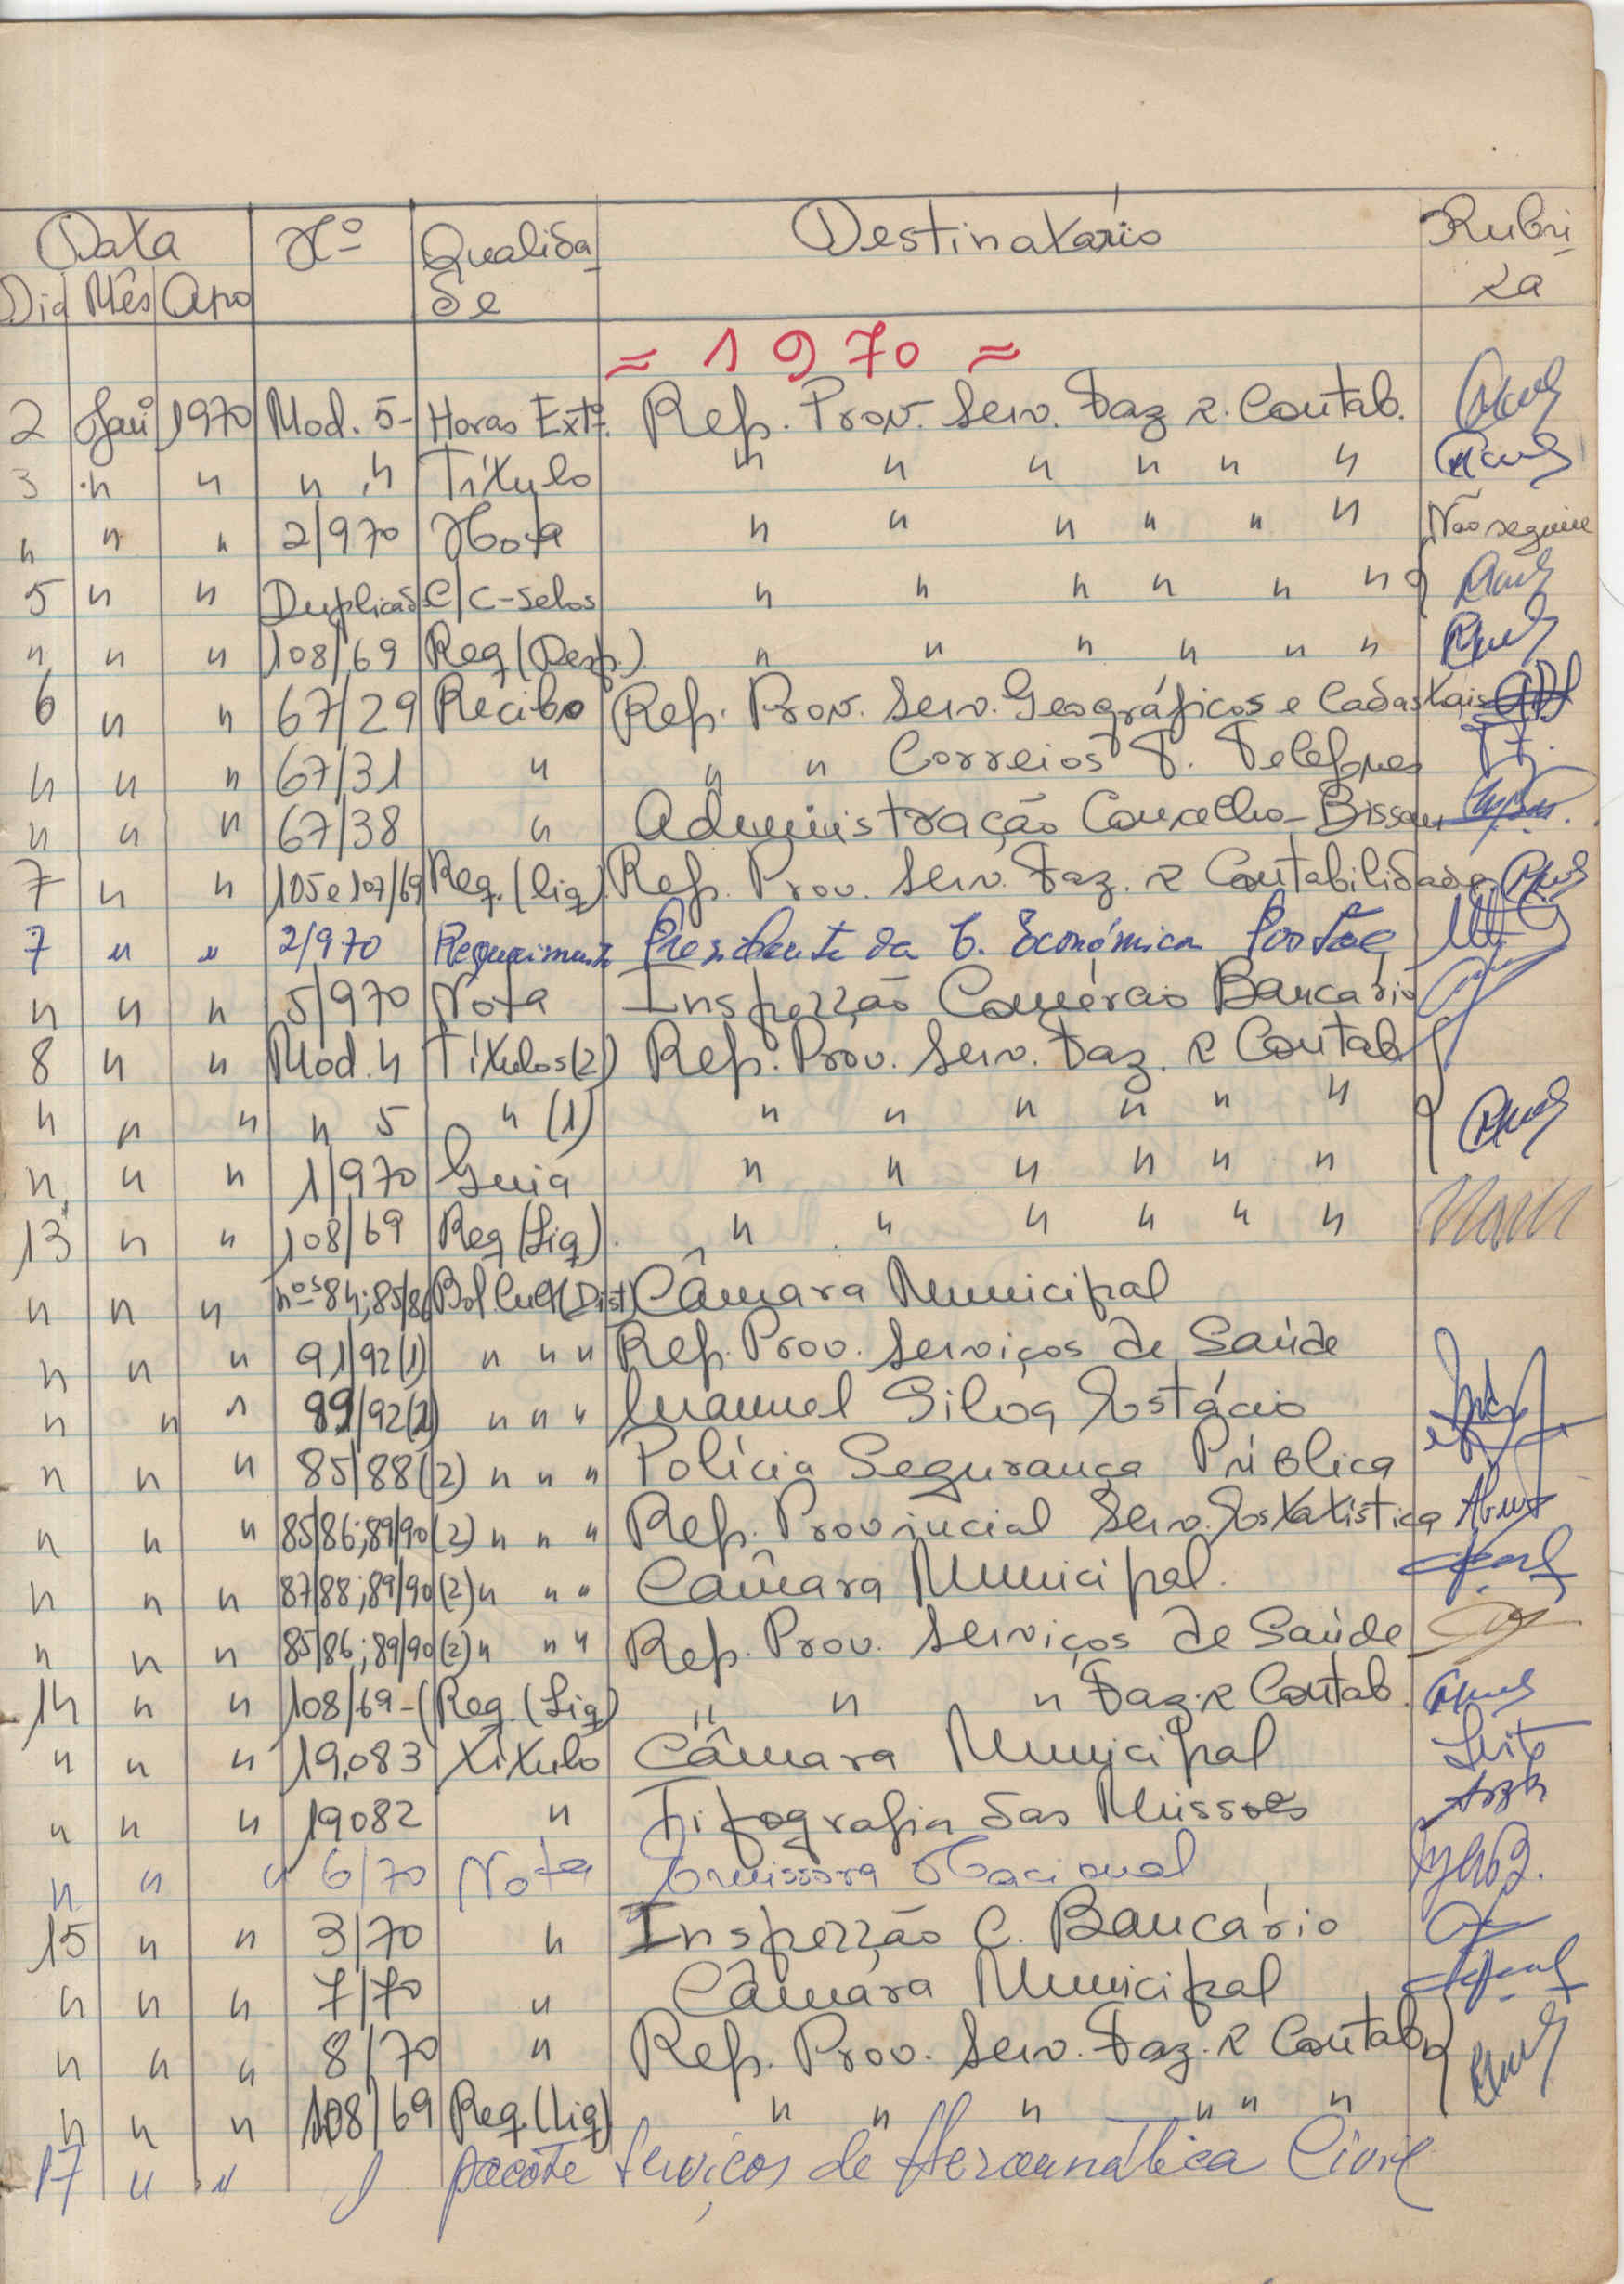 Data Nº Qualida- Destinatário Rubri-
Dia Mês Ano de ca
= 1970 =
2 Janº 1970 Mod. 5- Horas Extº. Rep. Prov. Serv. Faz e. Contab.
3 " " " " Título " " " " " "
" " " 2/970 Nota " " " " " " Não seguiu
5 " " Duplicado C/C-selos " " " " " "
" " " 108/69 Req (Desp.) " " " " " "
6 " " 67/29 Recibo Rep. Prov. Serv. Geográficos e Cadastrais
" " " 67/31 " " " Correios T. Telefones
" " " 67/38 " Administração Concelho-Bissau
7 " " 105 e 107/69 Req. (liq) Rep. Prov. Serv. Faz. e Contabilidade
7 " " 2/970 Requerimento Presidente da C. Económica Postal
" " " 5/970 Nota Inspecção Comércio Bancário
8 " " Mod. 4 Títulos (2) Rep. Prov. Serv. Faz. e Contab
" " " " 5 " (1) " " " " " "
" " " 1/970 Guia " " " " " "
13 " " 108/69 Req (Liq). " " " " " "
" " " nºs 84;85/86 (Dist) Câmara Municipal
" " " 91/92(1) " " " Rep. Prov. Serviços de Saúde
" " " /92 " " " Manuel Silva Estácio
" " " 85/88(2) " " " Polícia Segurança Pública
" " " 85/86;89/90(2) " " " Rep. Provincial Serv. Estatística
" " " 87/88;89/90(2) " " " Câmara Municipal.
" " " 85/86;89/90(2) " " " Rep. Prov. Serviços de Saúde
14 " " 108/69-( Req. (Liq) " " " Faz. e Contab.
" " " 19.083 Título Câmara Municipal Leite
" " " 19082 " Tipografia das Missões
" " " 6/70 Nota Emissora Nacional
15 " " 3/70 " Inspecção C. Bancário
" " " 7/70 " Câmara Municipal
" " " 8/70 " Rep. Prov. Serv. Faz. e Contab
" " " 108/69 Req. (Liq) " " " " " "
17 " " pacote Serviços de Aeronáutica Civil